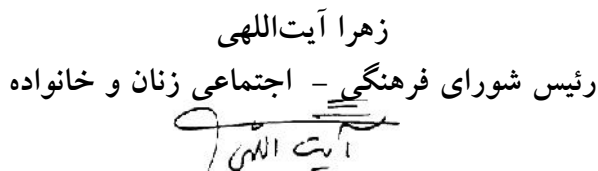 زهرا آیت‌اللهی
رئیس شورای فرهنگی - اجتماعی زنان و خانواده
آیت اللهی